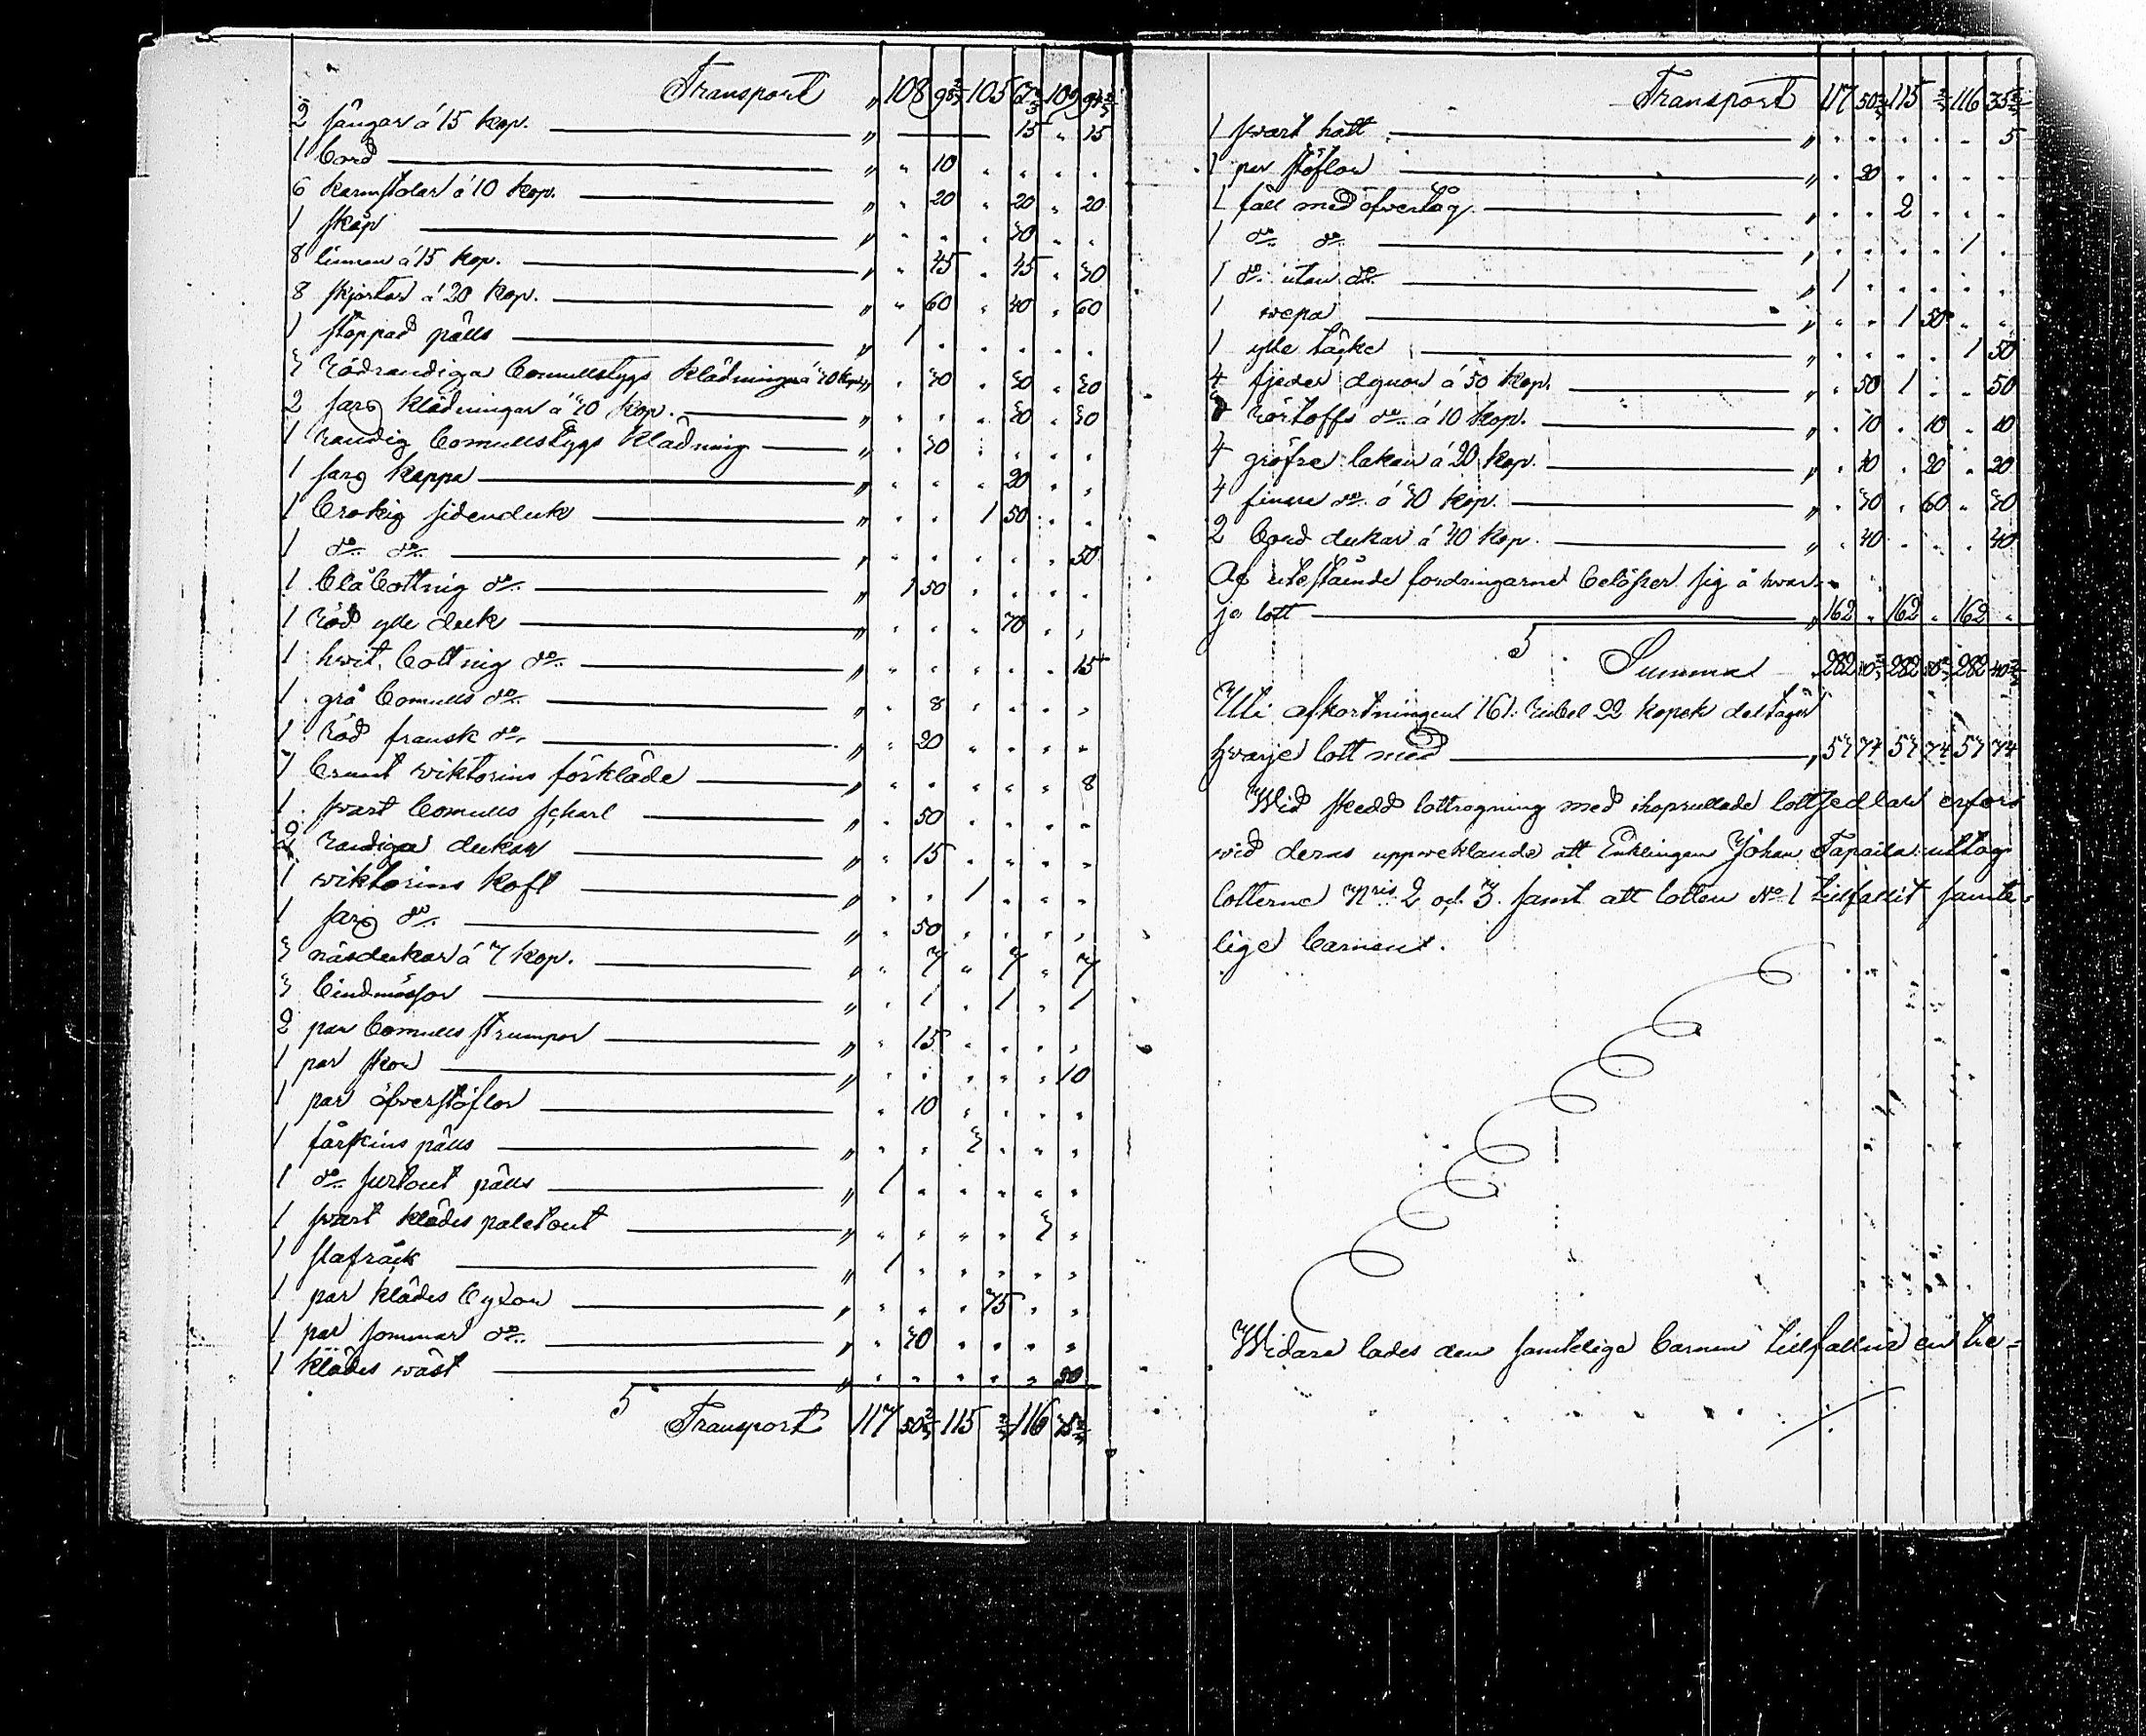 Transport " 108 98 2/3 105 67 2/3 109 97 2/3
2 sängar á 15 kop. " 15 " 15
1 bord " " 10
6 karmstolar á 10 kop. " " 20 " 20 " 20
1 skåp " 30
8 linnen á 15 kop. " " 45 " 45 " 30
8 skjortor á 20 kop. " " 60 " 40 " 60
1 stoppad päls " 1
3 rödrandiga bomullstygs klädningar á 30 kop. " " 30 " 30 " 30
2 sarg klädningar á 30 kop. " 30 " 30
1 randig bomullstygs klädning " " 30
1 sarg kappa " 20
1 brokig sidenduk " 1 50
1 do do " 50
1 blåbottnig do " 1 50
1 röd ylle duk " 70
1 hwit bottnig do " 15
1 grå bomulls do " " 8
1 röd fransk do " " 20
1 brunt wiktorins förkläde " 8
1 swart bomulls scharl " " 50
2 randiga dukar " " 15
1 wiktorins koft " 1
1 sarg do " " 50
3 näsdukar á 7 kop. " " 7 " 7 " 7
3 bindmössor " " 1 " 1 " 1
2 par bomulls strumpor " " 15
1 par skor " 10
1 par öfverstöflor " 10
1 fårskins päls " 3
1 do surtout päls " 1
1 swart klädes paletout " 3
1 slafråck " 1
1 par klädes byxor " 75
1 par sommar do " " 30
1 klädes wäst " 30
Transport 117 50 2/3 115 2/3 116 35 2/3
Transport 117 50 2/3 115 2/3 116 35 2/3
1 swart hatt " 5
1 par stöflor " " 30
1 fäll med öfvertåg " 2
1 do do " 1
1 do utan do " 1
1 wepa " 1 50
1 ylle täcke " 1 50
4 fjeder dynor á 50 kop. " " 50 1 " " 50
3 rörtoffs do á 10 kop. " " 10 " 10 " 10
4 gröfre lakan á 20 kop. " " 40 " 20 " 20
4 finare do á 30 kop. " " 30 " 60 " 30
2 bord dukar á 40 kop. " " 40 " " " 40
Af utestående fordringarne belöper sig å hvar-
je lott " 162 " 162 " 162 "
Summa 282 282 282 40 2/3
Uti afkortningen 161 Rubel 22 kopek deltager
hvarje lott med " 53 74 53 74 53 74
Wid skedd lottragning med ihoprullade lottsedlar erfors
wid deras uppwecklande att Enklingen Johan Tapaila uttog
lotterne Nris 2 och 3. samt att lotten No 1 tillfallit samte-
lige barnen.
Widare lades den samtelige barnen tillfallne en tre=